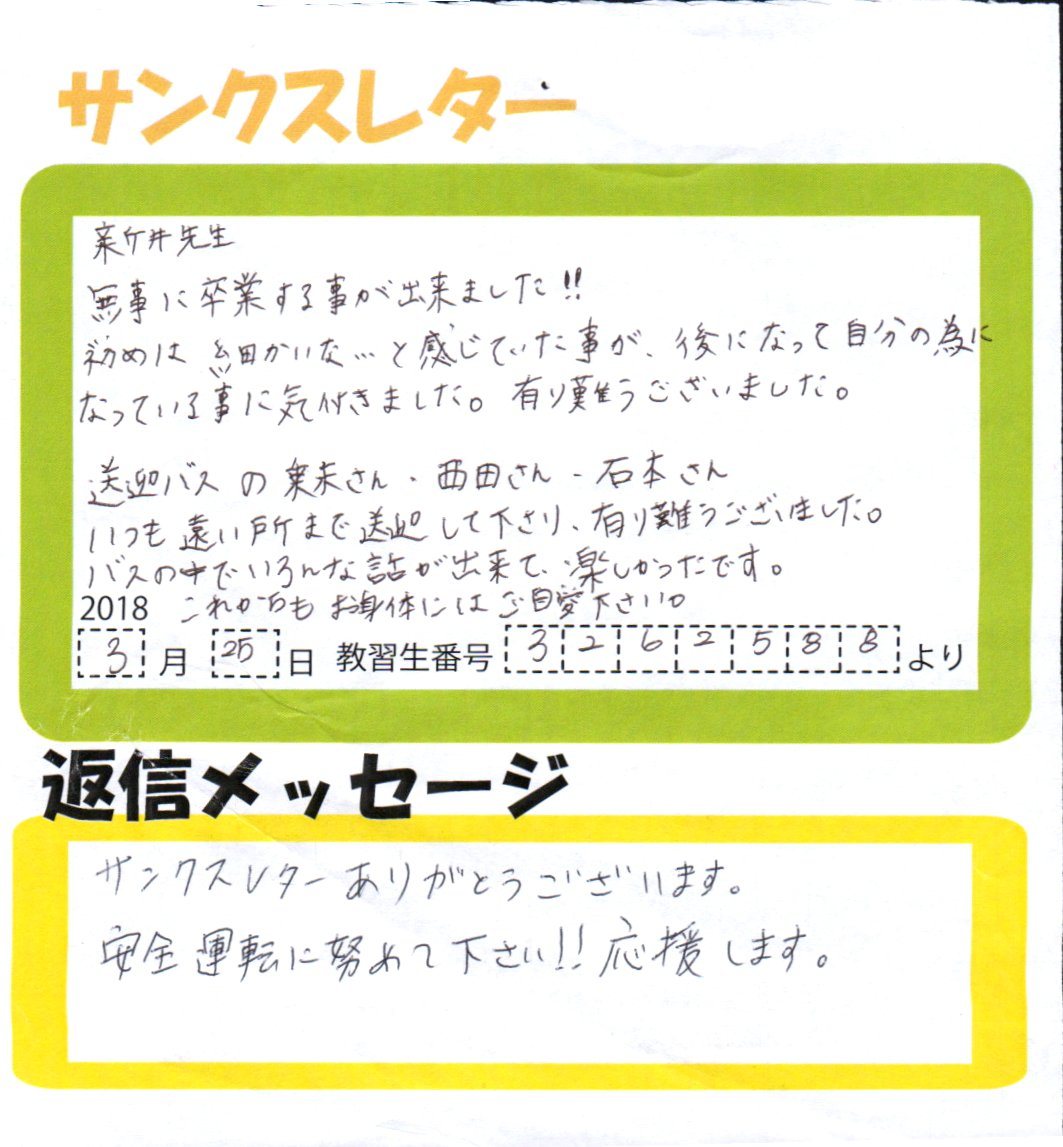 サンクスレター
井先生
無事に卒業する事が出来ました!!
初めは 細かいな…と感じていた事が、後になって自分の為に
なっている事に気付きました。有り難うございました。
送迎バスの さん・西田さん・石本さん
いつも遠い所まで送迎して下さり、有り難うございました。
バスの中でいろんな話が出来て、楽しかったです。
2018 これからも お身体にはご自愛下さい。
3月 25日 教習生番号 3262588 より
返信メッセージ
サンクスレターありがとうございます。
安全運転に努めて下さい!!応援します。